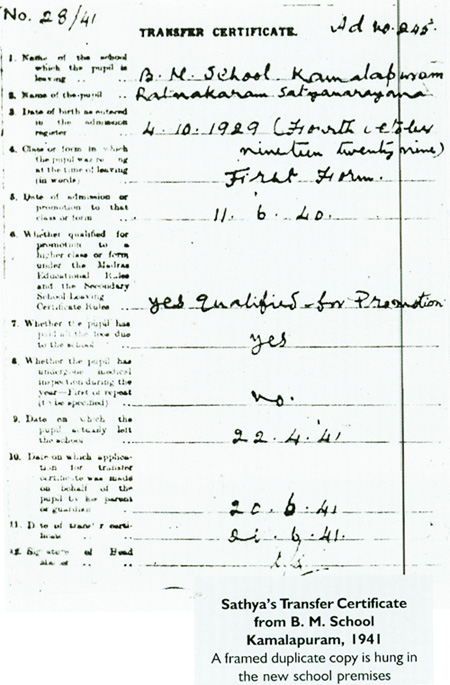 No. 28/41
Ad no. 245.
TRANSFER CERTIFICATE.
1. Name of the school
which the pupil is
leaving .. B. M. School Kamalapuram
2. Name of the pupil .. Ratnakaram Satyanarayana
3. Date of birth as entered
in the admission
register .. 4.10.1929 (Fourth october
nineteen twenty nine)
4. Class or form in which
the pupil was
at the time of leaving
(in words) .. First Form.
5. Date of admission or
promotion to that
class or form .. 11. 6. 40.
6. Whether qualified for
promotion to a
higher class or form
under the Madras
Educational Rules
and the Secondary
School Leaving
Certificate Rules .. yes qualified for Promotion
7. Whether the pupil has
paid all the fees due
to the school yes
8. Whether the pupil has
undergone medical
inspection during the
year—First or repeat
(to be specified) .. no.
9. Date on which the
pupil actually left
the school .. 22.4.41
10. Date on which applica-
tion for transfer
certificate was made
on behalf of the
pupil by his parent
or guardian .. 20.6.41
11. Date of transfer certi-
ficate .. 21.6.41.
12. Signature of Head
Master ..
Sathya's Transfer Certificate
from B. M. School
Kamalapuram, 1941
A framed duplicate copy is hung in
the new school premises